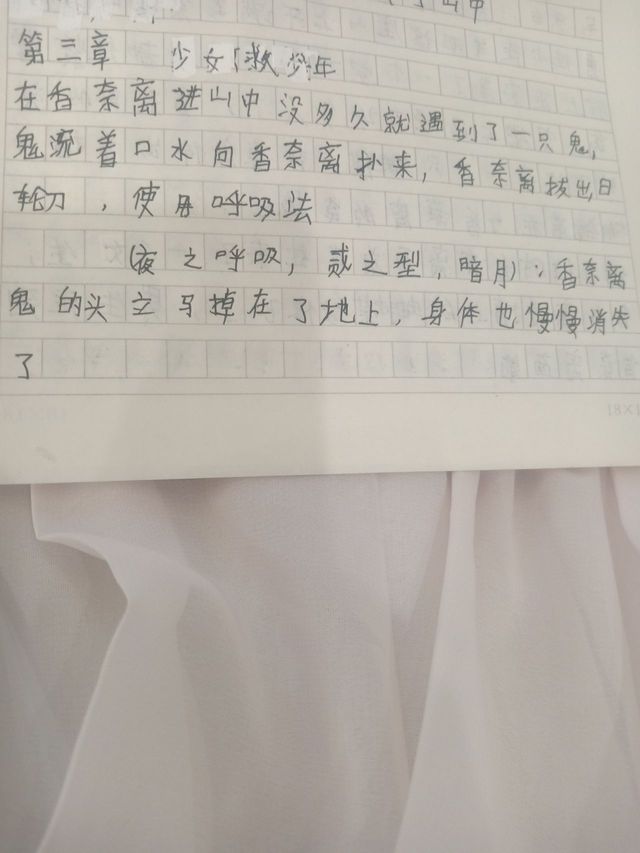 山中
第三章 少女救少年
在香奈离进山中没多久就遇到了一只鬼,
鬼流着口水向香奈离扑来,香奈离拔出日
轮刀,使用呼吸法
(夜之呼吸,贰之型,暗月):香奈离
鬼的头立马掉在了地上,身体也慢慢消失
了